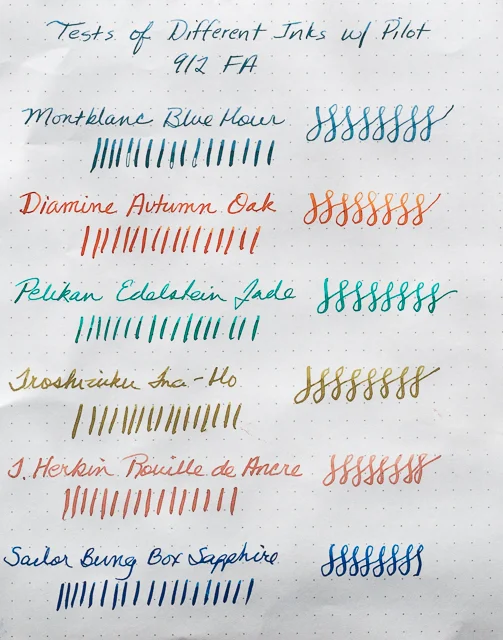 Tests of Different Inks w/ Pilot
912 FA
Montblanc Blue Hour
Diamine Autumn Oak
Pelikan Edelstein Jade
Iroshizuku Ina-Ho
J. Herbin Rouille de Ancre
Sailor Bung Box Sapphire